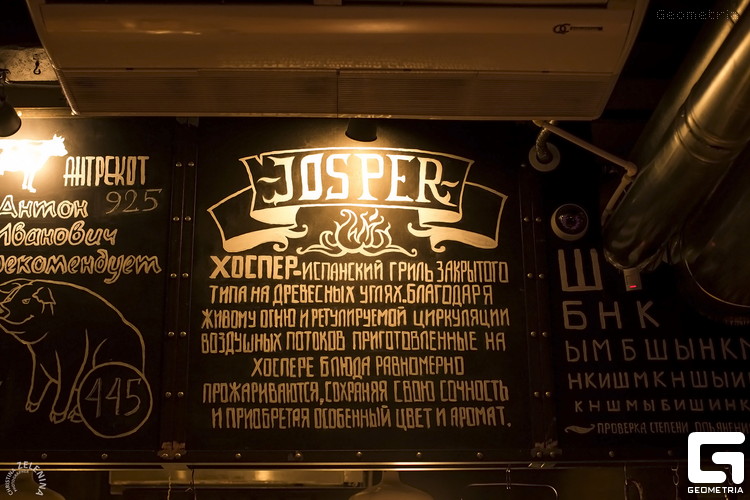 Geometria
АНТРЕКОТ
925
Антон
Иванович
рекомендует
445
JOSPER
ХОСПЕР-ИСПАНСКИЙ ГРИЛЬ ЗАКРЫТОГО
ТИПА НА ДРЕВЕСНЫХ УГЛЯХ.БЛАГОДАРЯ
ЖИВОМУ ОГНЮ И РЕГУЛИРУЕМОЙ ЦИРКУЛЯЦИИ
ВОЗДУШНЫХ ПОТОКОВ ПРИГОТОВЛЕННЫЕ НА
ХОСПЕРЕ БЛЮДА РАВНОМЕРНО
ПРОЖАРИВАЮТСЯ,СОХРАНЯЯ СВОЮ СОЧНОСТЬ
И ПРИОБРЕТАЯ ОСОБЕННЫЙ ЦВЕТ И АРОМАТ.
Ш
Б Н К
Ы М Б Ш Ы Н К М
Н К И Ш М К Н Ш Ы И
К Н Ш М Ы Б И Ш И Н К
ПРОВЕРКА СТЕПЕНИ
CHRISTINA ZELENINA
GEOMETRIA